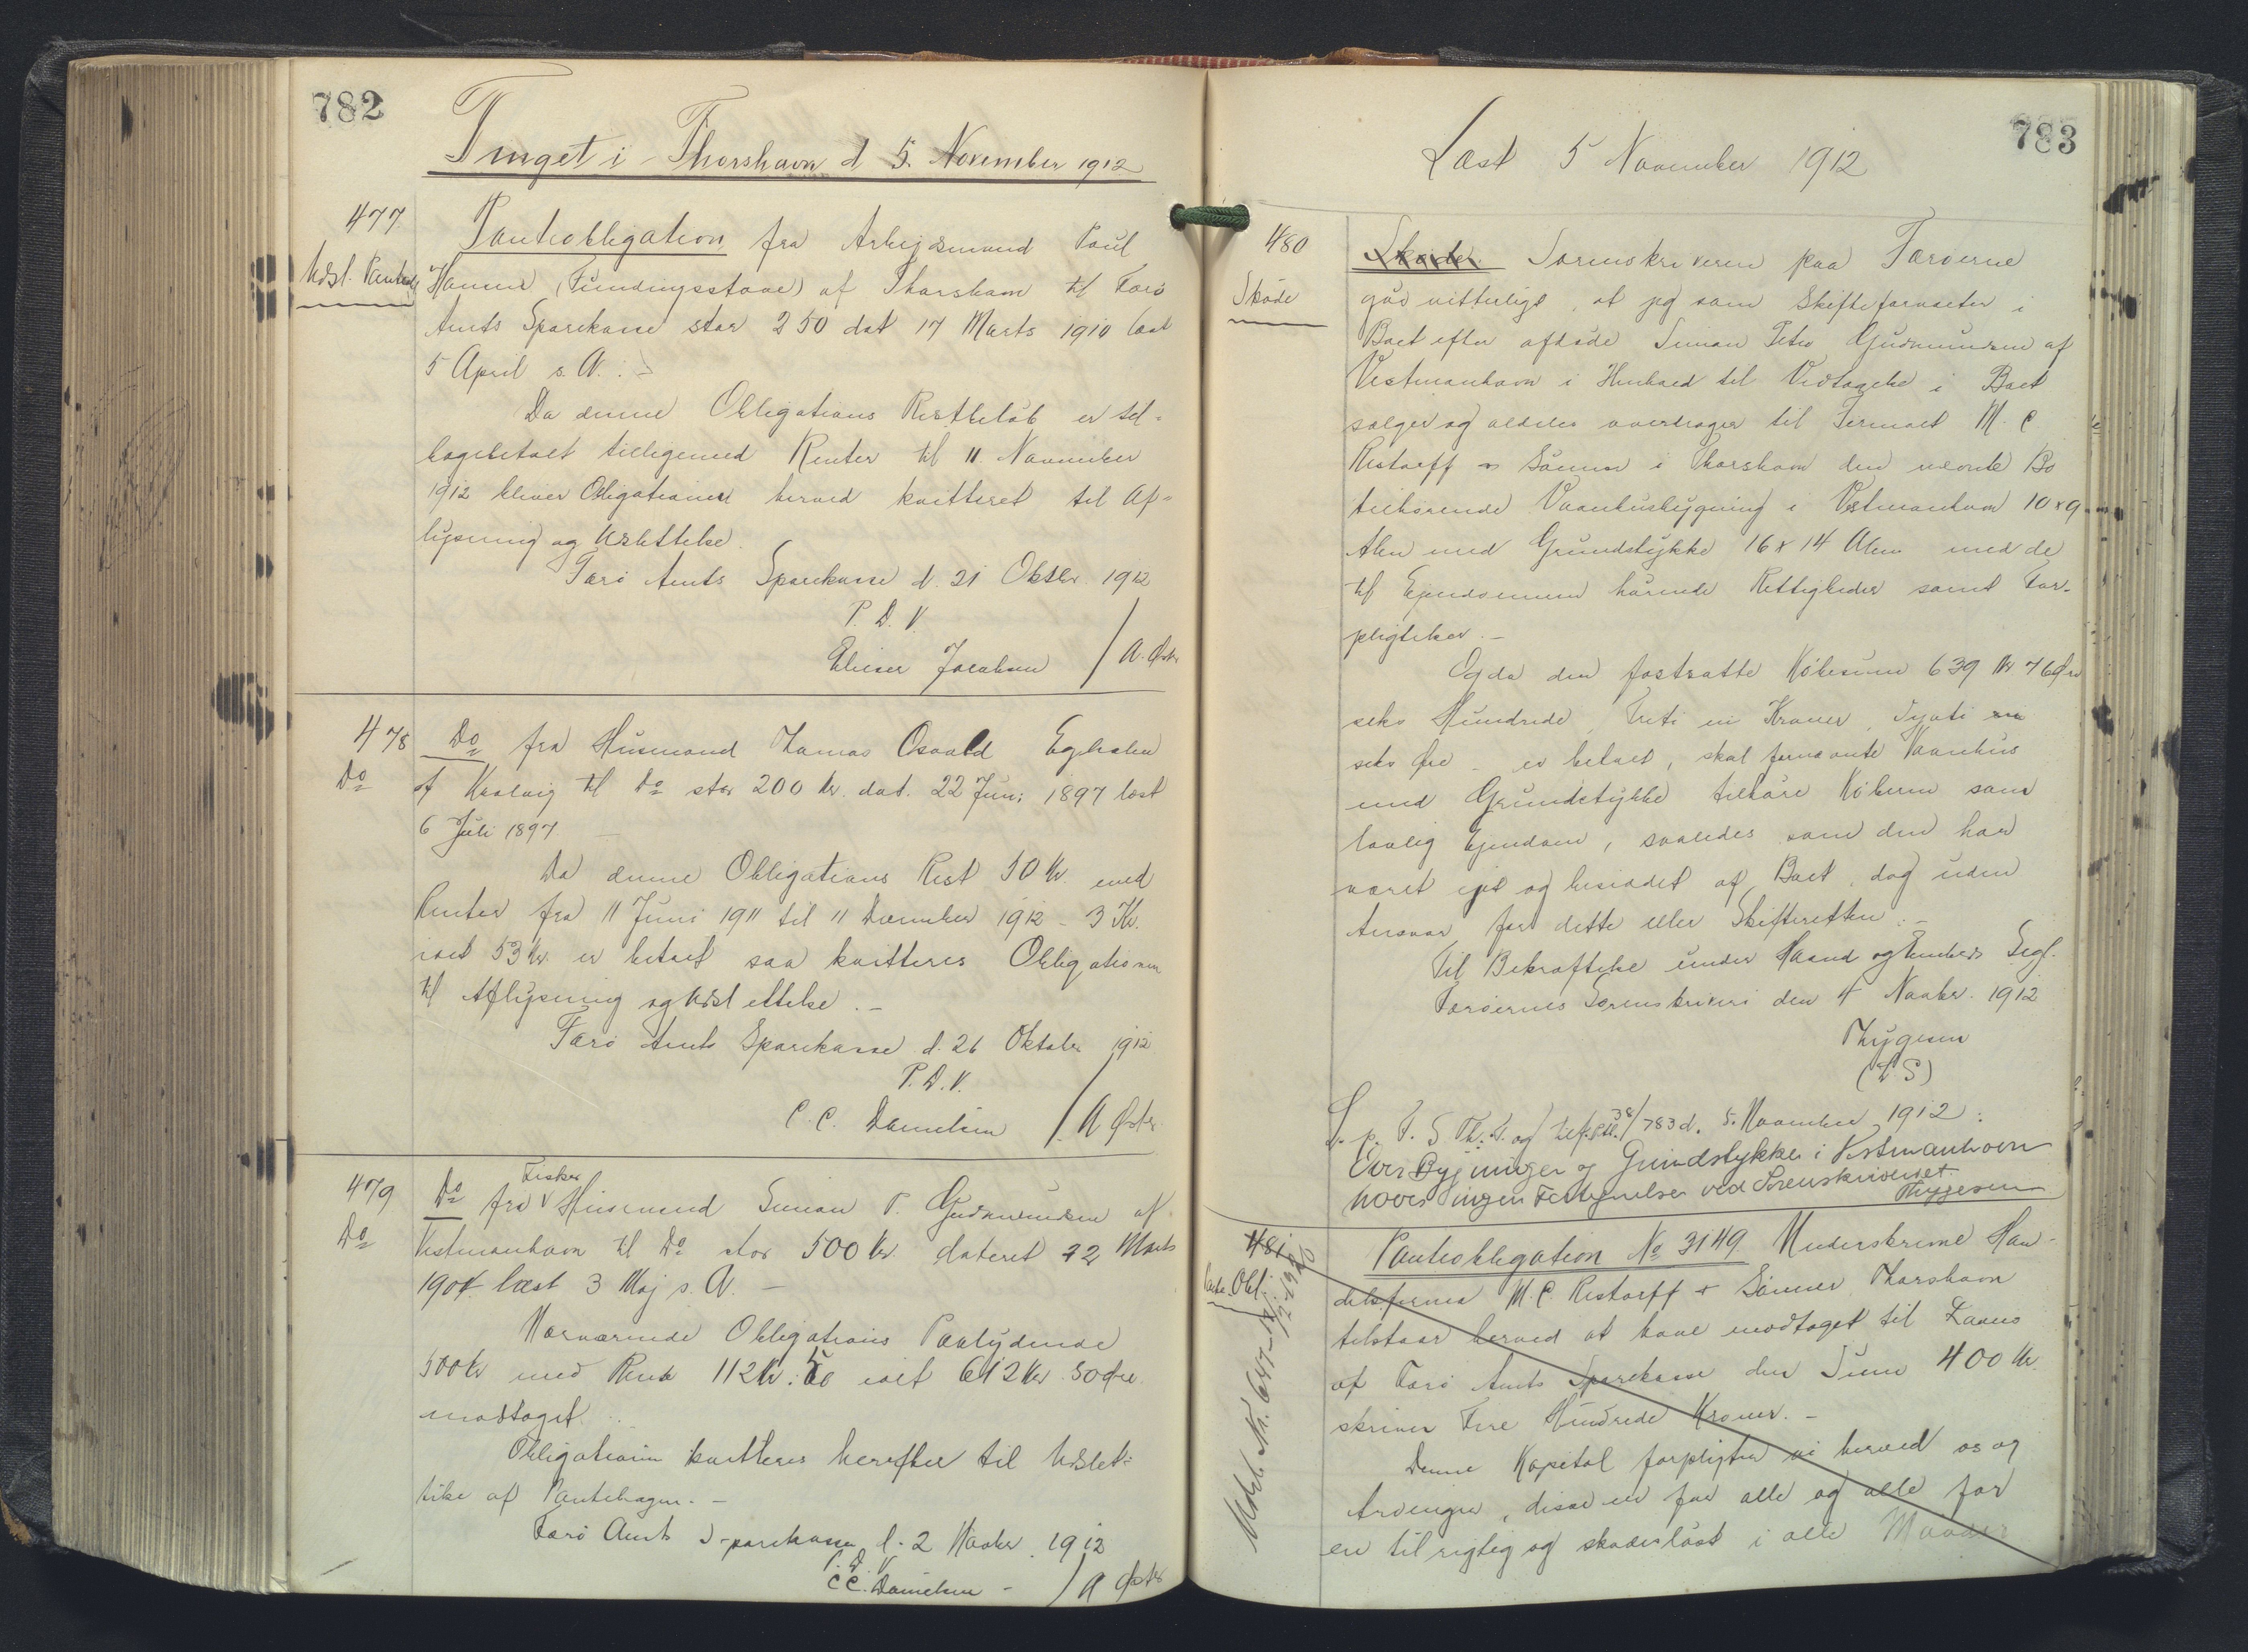 782
Tinget i Thorshavn d 5. November 1912
477.
Udsl. Panteobl
Panteobligation fra Arbejdsmand Poul
Hansen (Fundingsstove) af Thorshavn til Færø
Amts Sparekasse stor 250 dat 17 Marts 1910 læst
5 April s. A. :-
Da denne Obligations Restbeløb er til-
bagebetalt tilligemed Renter til 11 November
1912 bliver Obligationen herved kvitteret til Af-
lysning og Udslettelse.
Færø Amts Sparekasse d. 21 Oktbr. 1912
P. D. V.
Elieser Jacobsen / A. Østr
478
Do
Do fra Husmand Thomas Osvald Egholm
af Kvalvig til Do stor 200 Kr. dat. 22 Juni 1897 læst
6 Juli 1897 -
Da denne Obligations Rest 50 Kr. med
Renter fra 11 Juni 1911 til 11 December 1912 - 3 Kr.
ialt 53 Kr. er betalt saa kvitteres Obligationen
til Aflysning og Udslettelse . -
Færø Amts Sparekasse d. 26 Oktober 1912
P. D. V.
C. C. Danielsen / A Østr.
479
Do
Fisker
Do fra v Husmand Simon P. Gudmundsen af
Vestmanhavn til Do stor 500 Kr. dateret 22 Marts
1904 læst 3 Maj s. A. -
Nærværende Obligations Paalydende
500 Kr med Rente 112 Kr. 50 ialt 612 Kr 50 Øre
modtaget.
Obligationen kvitteres herefter til Udslet-
telse af Pantebogen. -
Færø Amts Sparekasse d. 2 Novbr. 1912
P. D. V.
C C. Danielsen - / A Østr
783
Læst 5 November 1912
480
Skøde
Skøde. Sorenskriveren paa Færøerne
gør vitterligt, at jeg som Skifteforvalter i
Boet efter afdøde Simon Peter Gudmundsen af
Vestmanhavn i Henhold til Vedtagelse i Boet
sælger og aldeles overdrager til Firmaet M. C
Restorff & Sønner i Thorshavn den nævnte Bo
tilhørende Vaanhusbygning i Vestmanhavn 10 x 9
Alen med Grundstykke 16 x 14 Alen med de
til Ejendommen hørende Rettigheder samt For-
pligtelser. -
Og da den fastsatte Købesum 639 Kr 76 Øre
seks Hundrede Treti ni Kroner Syvti
seks Øre - er betalt, skal fornævnte Vaanhus
med Grundstykke tilhøre Køberen som
lovlig Ejendom, saaledes som den har
været ejet og besiddet af Boet, dog uden
Ansvar for dette eller Skifteretten :-
Til Bekræftelse under Haand og Embeds Segl.
Færøernes Sorenskriveri den 4 Novbr. 1912
Thygesen
(L S)
L. p. F. S Th. T. og 38/783 d. 5. November 1912.
Over Bygninger og Grundstykke i Vestmanhavn
haves ingen Fæstemelser ved Sorenskriveriet.
Thygesen
481
Pante-Obl.
Udsl. Nr. 647 12/2-1920
Panteobligation No 3149. Underskrevne Han-
delsfirma M. C. Restorff & Sønner, Thorshavn
tilstaar herved at have modtaget til Laans
af Færø Amts Sparekasse den Sum 400 Kr.
skriver Fire Hundrede Kroner. -
Denne Kapital forpligter vi herved os og
Arvinger, disse en for alle og alle for
en til rigtig og skadesløst i alle Maader